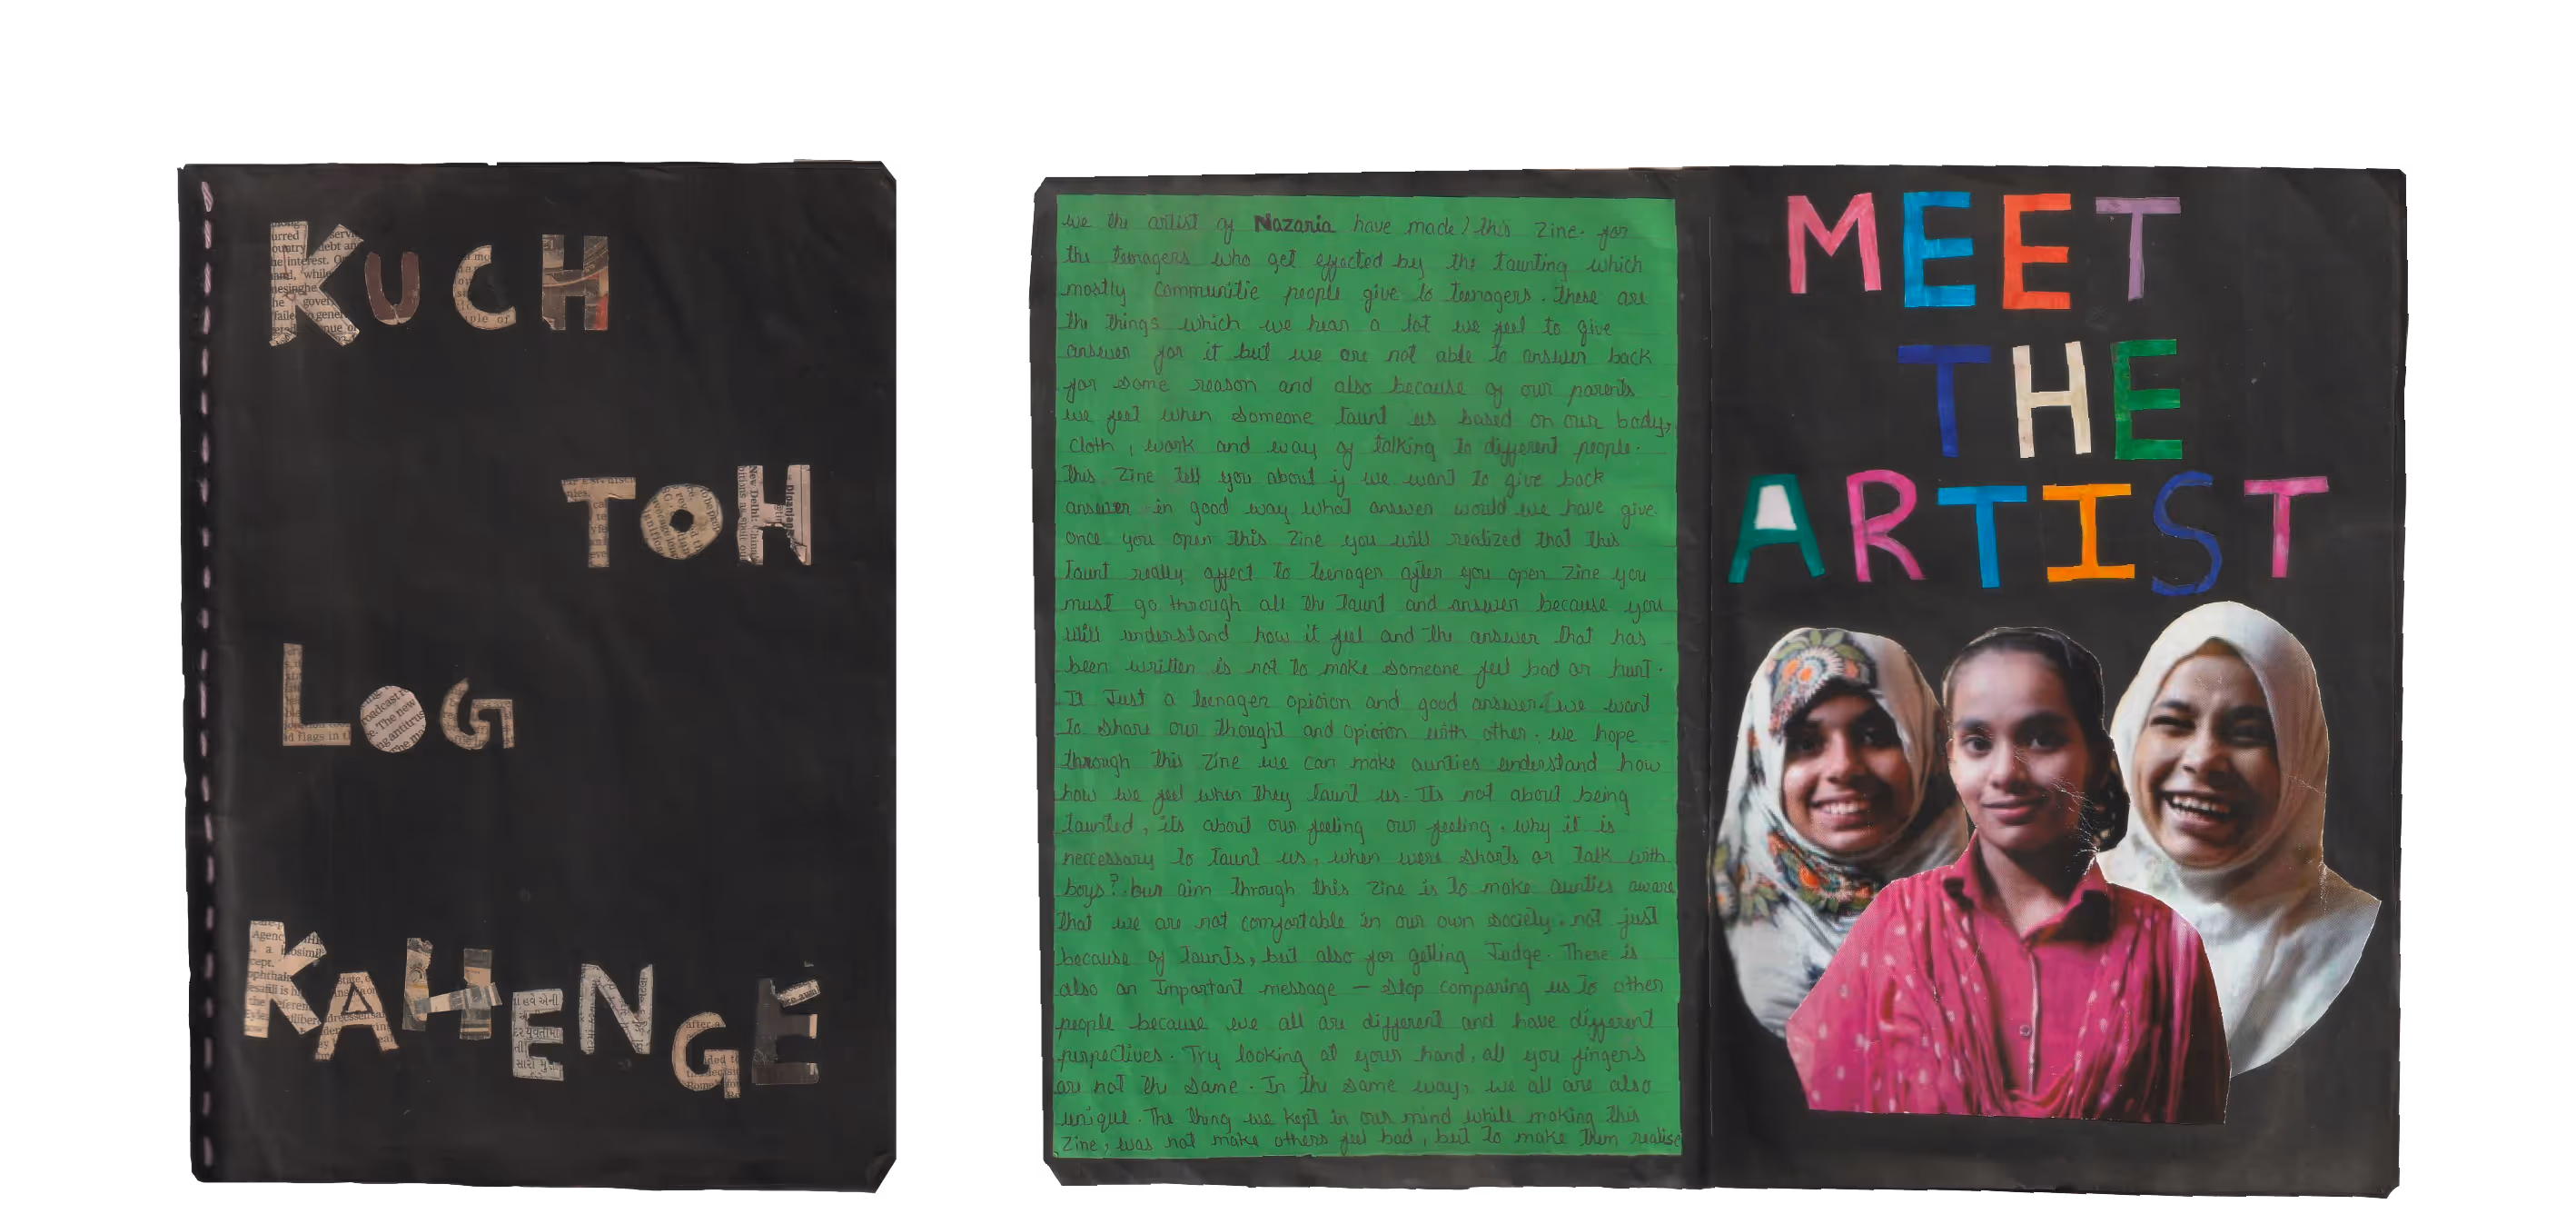 KUCH
TOH
LOG
KAHENGE
we the artist of Nazaria have made this Zine for
the teenagers who get effected by the taunting which
mostly communitie people give to teenagers. These are
the things which we hear a lot we feel to give
answer for it but we are not able to answer back
for some reason and also because of our parents
we feel when someone taunt us based on our body,
cloth, work and way of talking to different people.
This Zine tell you about if we want to give back
answer in good way what answer would we have give.
once you open this Zine you will realized that this
taunt really affect to teenager after you open Zine you
must go through all the taunt and answer because you
will understand how it feel and the answer that has
been written is not to make someone feel bad or hurt.
It Just a teenager opioion and good answer. we want
To share our thought and opioion with other. we hope
through this Zine we can make aunties understand how
how we feel when they taunt us. Its not about being
taunted, its about our feeling our feeling. why it is
neccessary to taunt us, when were shorts or talk with
boys? our aim through this Zine is to make aunties aware
that we are not comfortable in our own society. not just
because of taunts, but also for getting Judge. There is
also an Important message – stop comparing us to other
people because we all are different and have different
perpectives. Try looking at your hand, all you fingers
are not the same. In the same way, we all are also
unique. The thing we kept in our mind while making this
Zine, was not make others feel bad, but to make them realise
MEET
THE
ARTIST